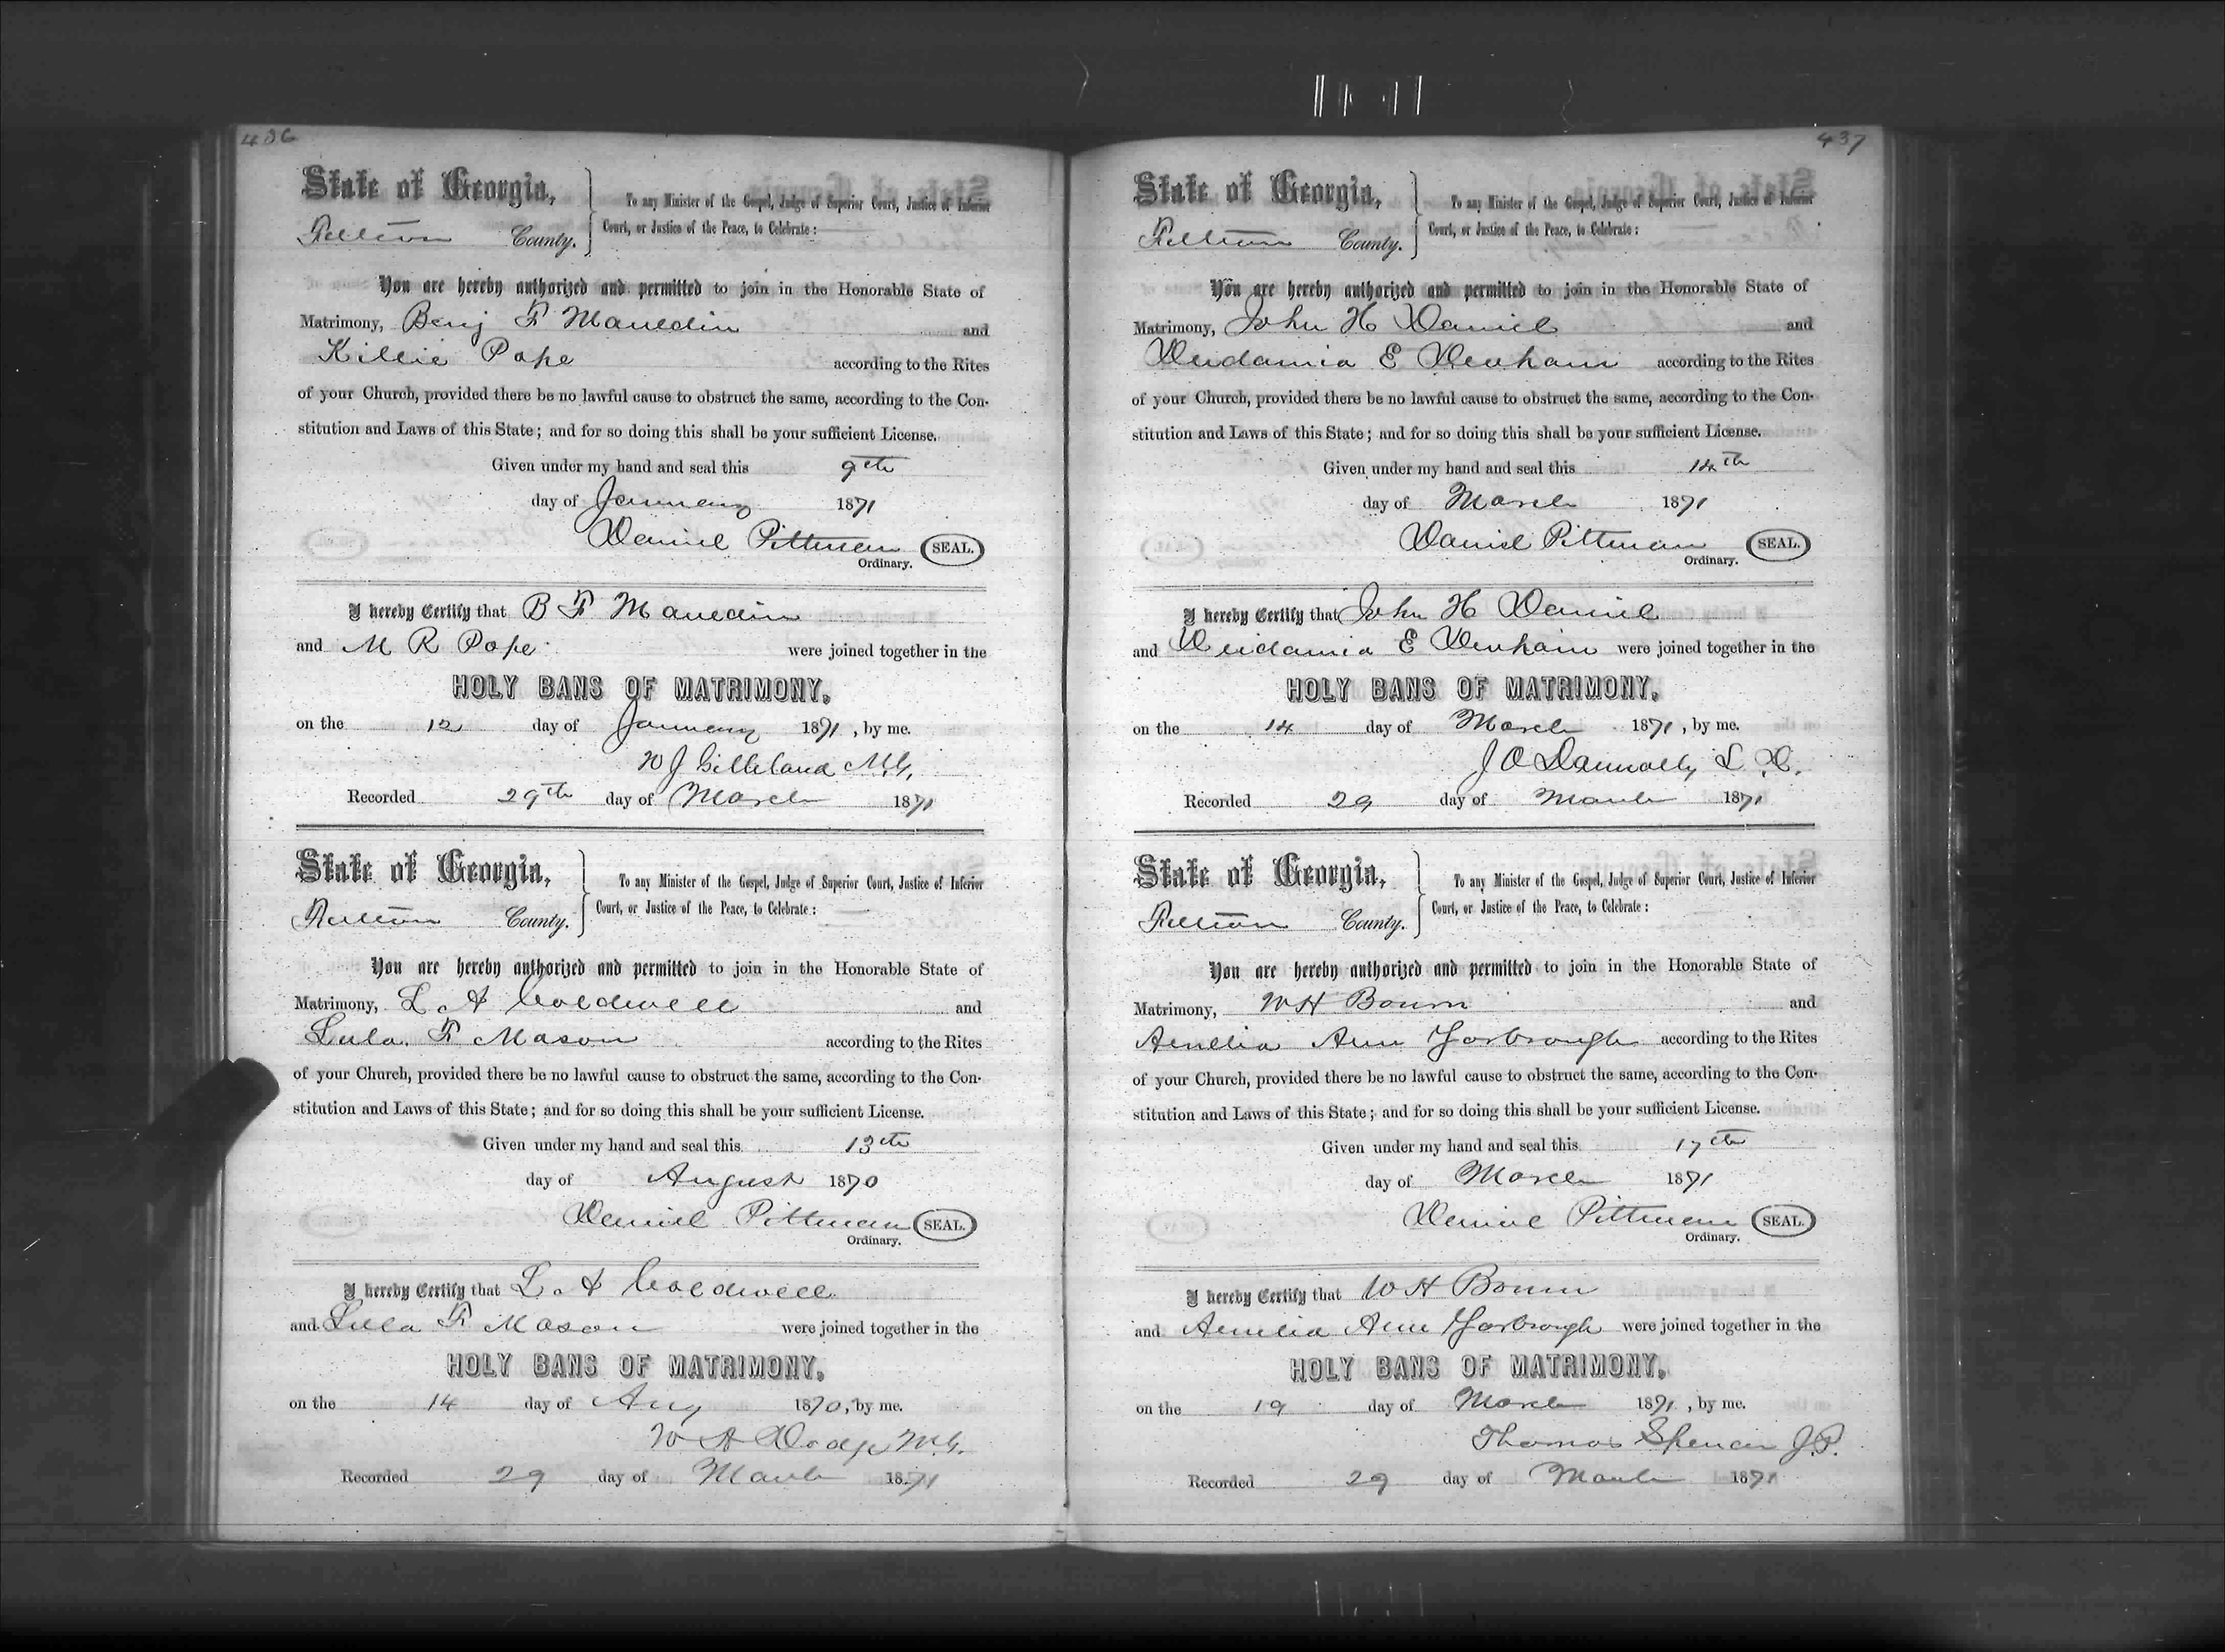 436
State of Georgia,
Fulton County.
To any Minister of the Gospel, Judge of Superior Court, Justice of Inferior
Court, or Justice of the Peace, to Celebrate:
You are hereby authorized and permitted to join in the Honorable State of
Matrimony, Benj F Mauldin and
Killie Pope according to the Rites
of your Church, provided there be no lawful cause to obstruct the same, according to the Con-
stitution and Laws of this State; and for so doing this shall be your sufficient License.
Given under my hand and seal this 9th
day of January 1871
Daniel Pittman SEAL.
Ordinary.
I hereby Certify that B F Mauldin
and M R Pope were joined together in the
HOLY BANS OF MATRIMONY,
on the 12 day of January 1871, by me.
W J Gilleland M.G.
Recorded 29th day of March 1871
State of Georgia,
Fulton County.
To any Minister of the Gospel, Judge of Superior Court, Justice of Inferior
Court, or Justice of the Peace, to Celebrate:
You are hereby authorized and permitted to join in the Honorable State of
Matrimony, L A Caldwell and
Lula F Mason according to the Rites
of your Church, provided there be no lawful cause to obstruct the same, according to the Con-
stitution and Laws of this State; and for so doing this shall be your sufficient License.
Given under my hand and seal this 13th
day of August 1870
Daniel Pittman SEAL.
Ordinary.
I hereby Certify that L. A Caldwell
and Lula F Mason were joined together in the
HOLY BANS OF MATRIMONY,
on the 14 day of Aug 1870, by me.
W A Dodge M.G.
Recorded 29 day of March 1871
437
State of Georgia,
Fulton County.
To any Minister of the Gospel, Judge of Superior Court, Justice of Inferior
Court, or Justice of the Peace, to Celebrate:
You are hereby authorized and permitted to join in the Honorable State of
Matrimony, John H Daniel and
Deidamia E Denham according to the Rites
of your Church, provided there be no lawful cause to obstruct the same, according to the Con-
stitution and Laws of this State; and for so doing this shall be your sufficient License.
Given under my hand and seal this 14th
day of March 1871
Daniel Pittman SEAL.
Ordinary.
I hereby Certify that John H Daniel
and Deidamia E Denham were joined together in the
HOLY BANS OF MATRIMONY,
on the 14 day of March 1871, by me.
J O Dannally L. D.
Recorded 29 day of March 1871
State of Georgia,
Fulton County.
To any Minister of the Gospel, Judge of Superior Court, Justice of Inferior
Court, or Justice of the Peace, to Celebrate:
You are hereby authorized and permitted to join in the Honorable State of
Matrimony, W H Bourn and
Amelia Ann Yarbrough according to the Rites
of your Church, provided there be no lawful cause to obstruct the same, according to the Con-
stitution and Laws of this State; and for so doing this shall be your sufficient License.
Given under my hand and seal this 17th
day of March 1871
Daniel Pittman SEAL.
Ordinary.
I hereby Certify that W H Bourn
and Amelia Ann Yarbrough were joined together in the
HOLY BANS OF MATRIMONY,
on the 19 day of March 1871, by me.
Thomas Spencer J.P.
Recorded 29 day of March 1871